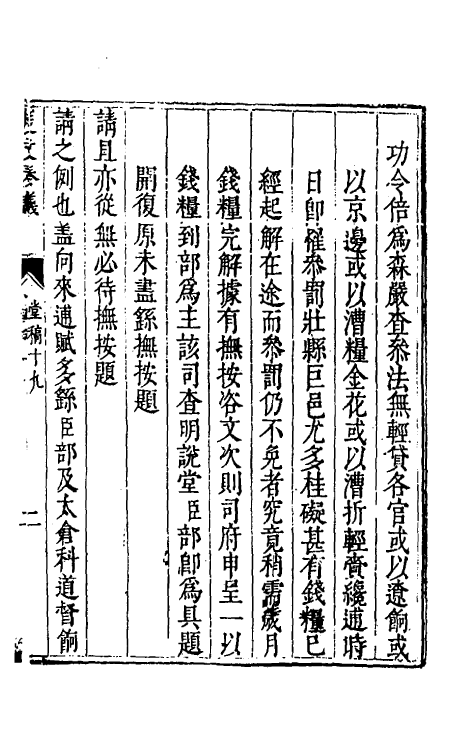 功令倍爲森嚴查叅法無輕貸各官或以遼餉或
以京邊或以漕糧金花或以漕折輕賫纔逋時
日卽罹叅罰壯縣巨邑尤多桂礙甚有錢糧已
經起解在途而叅罰仍不免者究竟稍需歲月
錢糧完解據有撫按咨文次則司府申呈一以
錢糧到部爲主該司查明說堂臣部卽爲具題
開復原未盡繇撫按題
請且亦從無必待撫按題
請之例也盖向來逋賦多繇臣部及太倉科道督餉
奏議
堂稿十九
二